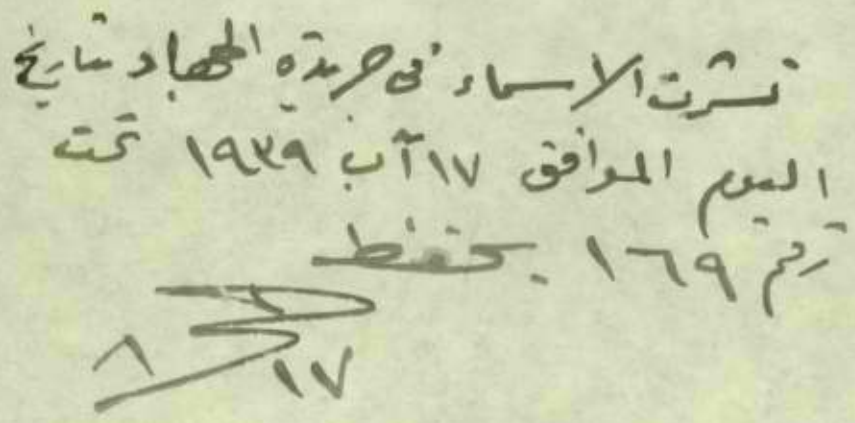 نشرت الاسماء في جريدة الجهاد بتاريخ
اليوم الموافق ١٧ آب ١٩٣٩ تحت
رقم ١٦٩ يحفظ
٨
١٧